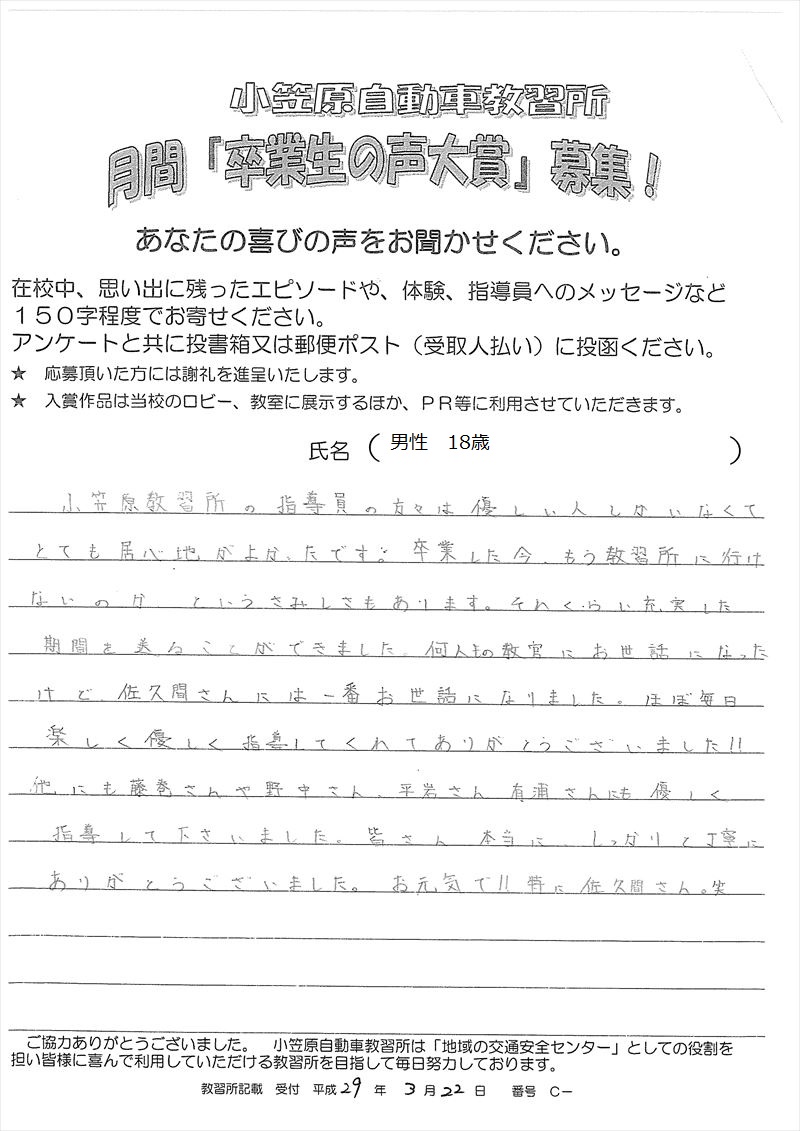 小笠原自動車教習所
月間『卒業生の声大賞』募集!
あなたの喜びの声をお聞かせください。
在校中、思い出に残ったエピソードや、体験、指導員へのメッセージなど
150字程度でお寄せください。
アンケートと共に投書箱又は郵便ポスト(受取人払い)に投函ください。
★ 応募頂いた方には謝礼を進呈いたします。
★ 入賞作品は当校のロビー、教室に展示するほか、PR等に利用させていただきます。
氏名(男性 18歳)
小笠原教習所の指導員の方々は優しい人しかいなくて
とても居心地がよかったです。卒業した今、もう教習所に行け
ないのか というさみしさもあります。それくらい充実した
期間を送ることができました。何人もの教官にお世話になった
けど、佐久間さんには一番お世話になりました。ほぼ毎日
楽しく優しく指導してくれてありがとうございました!!
他にも藤巻さんや野中さん、平岩さん 有浦さんにも優しく
指導して下さいました。皆さん 本当に、しっかりと丁寧に
ありがとうございました。 お元気で!! 特に佐久間さん。笑
ご協力ありがとうございました。 小笠原自動車教習所は「地域の交通安全センター」としての役割を
担い皆様に喜んで利用していただける教習所を目指して毎日努力しております。
教習所記載 受付 平成29年 3月22日 番号 C-